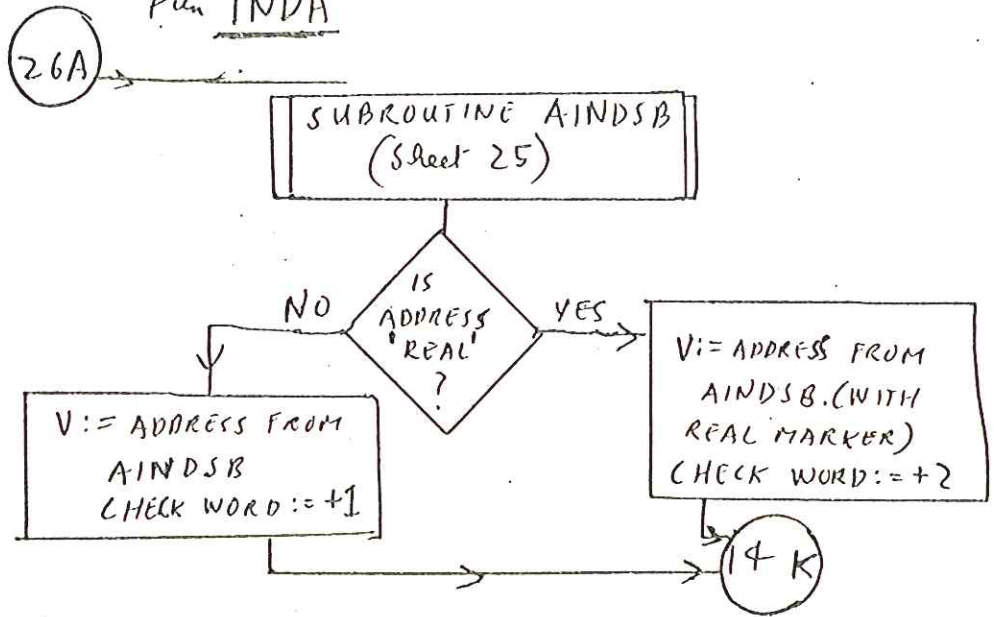 INDA
26A
SUBROUTINE AINDSB
(Sheet 25)
IS
ADDRESS
'REAL'
?
NO
YES
V:= ADDRESS FROM
AINDSB
CHECK WORD:= +1
V:= ADDRESS FROM
AINDSB.(WITH
REAL MARKER)
CHECK WORD:= +2
14 K